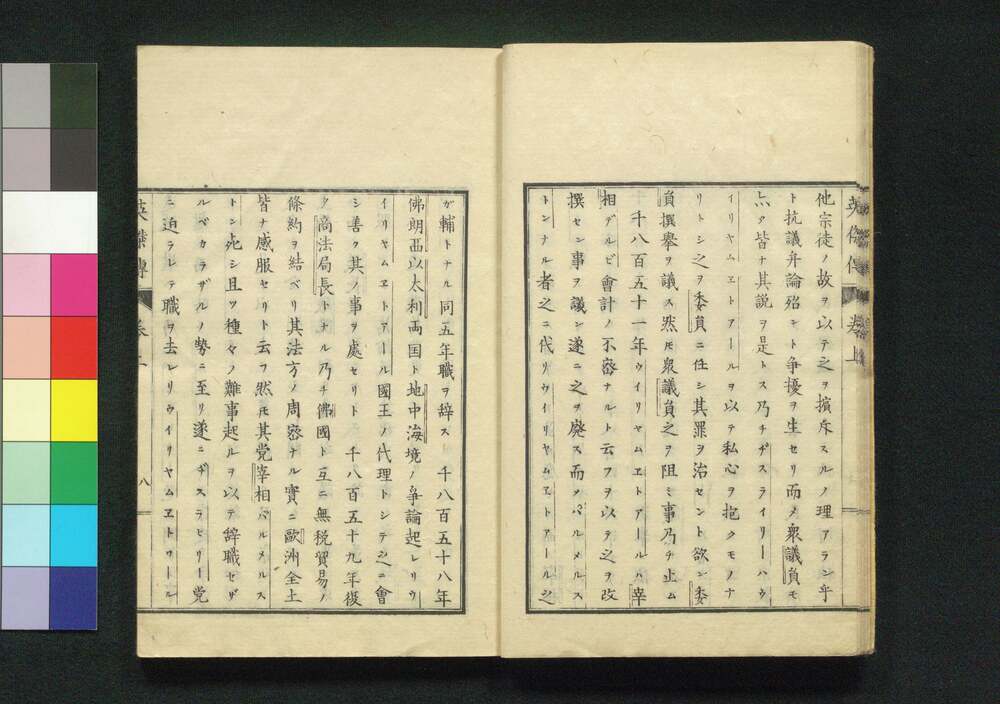 他宗徒ノ故ヲ以テ之ヲ擯斥スルノ理アランヤ
ト抗議弁論殆ント争擾ヲ生セリ而メ衆議員モ
亦タ皆ナ其説ヲ是トス乃チヂスライリーハウ
イリヤムヱトアールヲ以テ私心ヲ抱クモノナ
リトシ之ヲ委員ニ任シ其罪ヲ治セント欲シ委
員撰挙ヲ議ス然モ衆議員之ヲ阻ミ事乃チ止ム
千八百五十一年ウイリヤムヱトアールハ宰
相デルビ會計ノ不密ナルト云フヲ以テ之ヲ改
撰セン事ヲ議シ遂ニ之ヲ廃ス而メパルメルス
トンナル者之ニ代リウイリヤムヱトアール之
英傑傳 巻上
ガ輔トナル同五年職ヲ辞ス 千八百五十八年
佛朗西以太利両国ト地中海境ノ争論起レリウ
イリヤムヱトアール國王ノ代理トシテ之ニ會
シ善ク其ノ事ヲ處セリト 千八百五十九年復
タ商法局長トナル乃チ佛國ト互ニ無税貿易ノ
條約ヲ結ベリ其法方ノ周密ナル實ニ歐洲全土
皆ナ感服セリト云フ然モ其党宰相パルメルス
トン死シ且ツ種々ノ難事起ルヲ以テ辞職セザ
ルベカラザルノ勢ニ至リ遂ニヂスラヒリー党
ニ迫ラレテ職ヲ去レリウイリヤムヱトワール
英傑傳 巻上 八